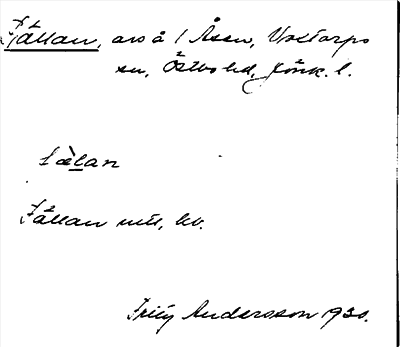 Fållan, avs å 1 Åsen, Voxtorps
sn, Östbo hd, Jönk. l.
fålan
Fållan mtl, kv.
Andersson 1930.